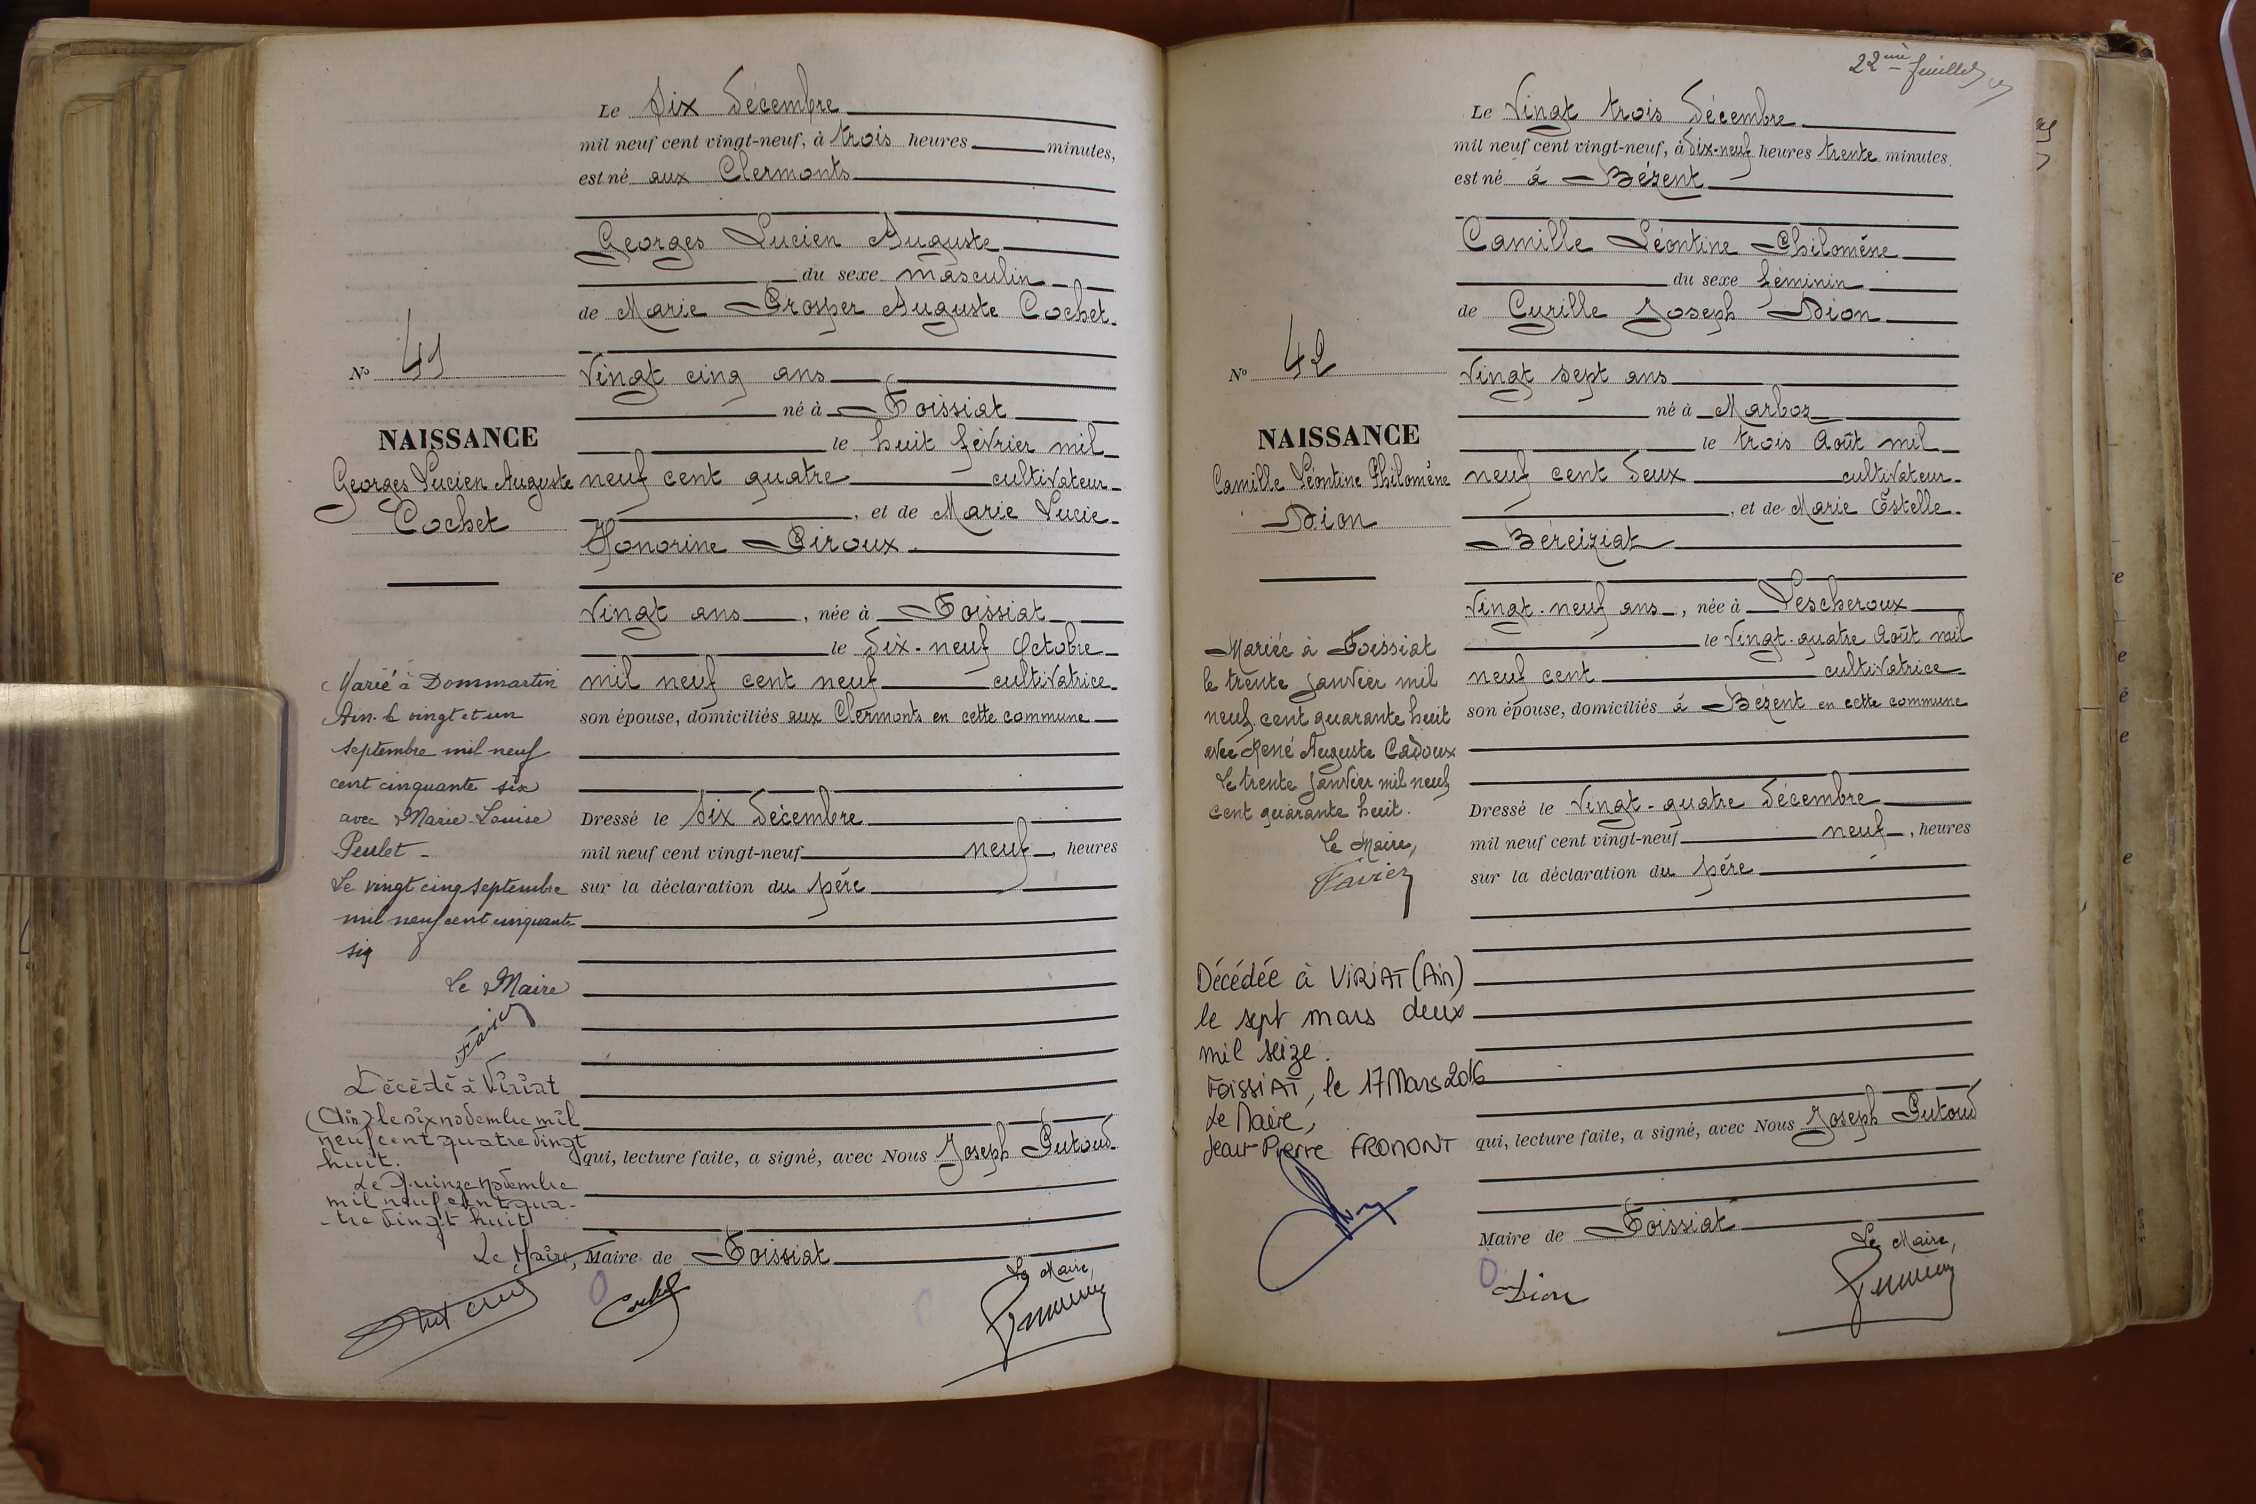 Le Six Décembre
mil neuf cent vingt-neuf, à trois heures minutes,
est né aux Clermonts
Georges Lucien Auguste
du sexe masculin
de Marie Prosper Auguste Cochet
Vingt cinq ans
né à Foissiat
le huit février mil
neuf cent quatre cultivateur
, et de Marie Lucie
Honorine Piroux
Vingt ans, née à Foissiat
le dix-neuf Octobre
mil neuf cent neuf cultivatrice
son épouse, domiciliés aux Clermonts en cette commune
Dressé le Six Décembre
mil neuf cent vingt-neuf neuf, heures
sur la déclaration du père
qui, lecture faite, a signé, avec Nous Joseph Putoud
Maire de Foissiat
Le Maire,
Cochet
No 41
NAISSANCE
Georges Lucien Auguste
Cochet
Marié à Dommartin
Ain. le vingt et un
septembre mil neuf
cent cinquante six
avec Marie-Louise
Peulet
Le vingt cinq septembre
mil neuf cent cinquante
six
Le Maire
Favier
Décédé à Viriat
(Ain) le six novembre mil
neuf cent quatre vingt
huit.
Le Quinze novembre
mil neuf cent qua-
-tre vingt huit
Le Maire,
22ème feuillet
Le Vingt trois Décembre
mil neuf cent vingt-neuf, à dix-neuf heures trente minutes
est né à Bézent
Camille Léontine Philomène
du sexe féminin
de Cyrille Joseph Dion
Vingt sept ans
né à Marboz
le trois Août mil
neuf cent deux cultivateur
, et de Marie Estelle
Béreiziat
Vingt-neuf ans, née à Lescheroux
le Vingt-quatre Août mil
neuf cent cultivatrice
son épouse, domiciliés à Bézent en cette commune
Dressé le Vingt-quatre Décembre
mil neuf cent vingt-neuf neuf, heures
sur la déclaration du père
qui, lecture faite, a signé, avec Nous Joseph Putoud
Maire de Foissiat
Le Maire,
Dion
No 42
NAISSANCE
Camille Léontine Philomène
Dion
Mariée à Foissiat
le trente Janvier mil
neuf cent quarante huit
avec René Auguste Cadoux
Le trente Janvier mil neuf
cent quarante huit.
Le Maire,
Favier
Décédée à VIRIAT (Ain)
le sept mars deux
mil seize.
FOISSIAT, le 17 Mars 2016
Le Maire,
Jean-Pierre FROMONT